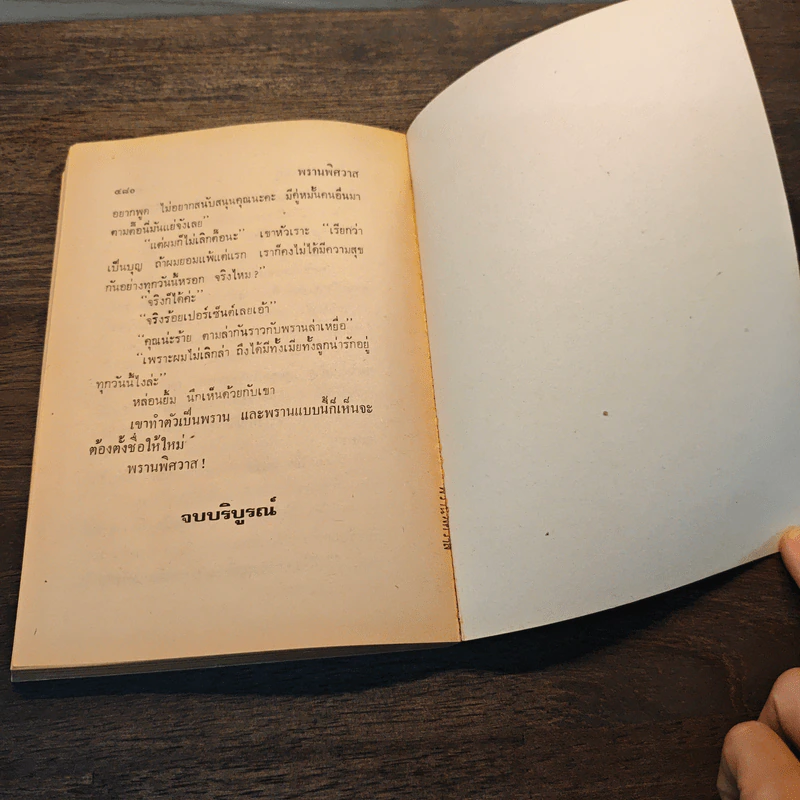 ๔๘๐
พรานพิศวาส
อยากพูด ไม่อยากสนับสนุนคุณนะคะ มีคู่หมั้นคนอื่นมา
ตามตื๊อนี่มันแย่จังเลย"
"แต่ผมก็ไม่เลิกตื๊อนะ" เขาหัวเราะ "เรียกว่า
เป็นบุญ ถ้าผมยอมแพ้แต่แรก เราก็คงไม่ได้มีความสุข
กันอย่างทุกวันนี้หรอก จริงไหม?"
"จริงก็ได้ค่ะ"
"จริงร้อยเปอร์เซ็นต์เลยเอ้า"
"คุณน่ะร้าย ตามล่ากันราวกับพรานล่าเหยื่อ"
"เพราะผมไม่เลิกล่า ถึงได้มีทั้งเมียทั้งลูกน่ารักอยู่
ทุกวันนี้ไงล่ะ"
หล่อนยิ้ม นึกเห็นด้วยกับเขา
เขาทำตัวเป็นพราน และพรานแบบนี้ก็เห็นจะ
ต้องตั้งชื่อให้ใหม่
พรานพิศวาส!
จบบริบูรณ์